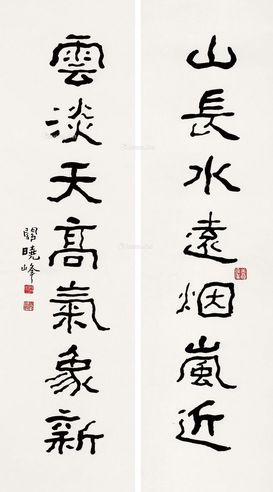 山長水遠烟嵐近
雲淡天高氣象新
關曉峰